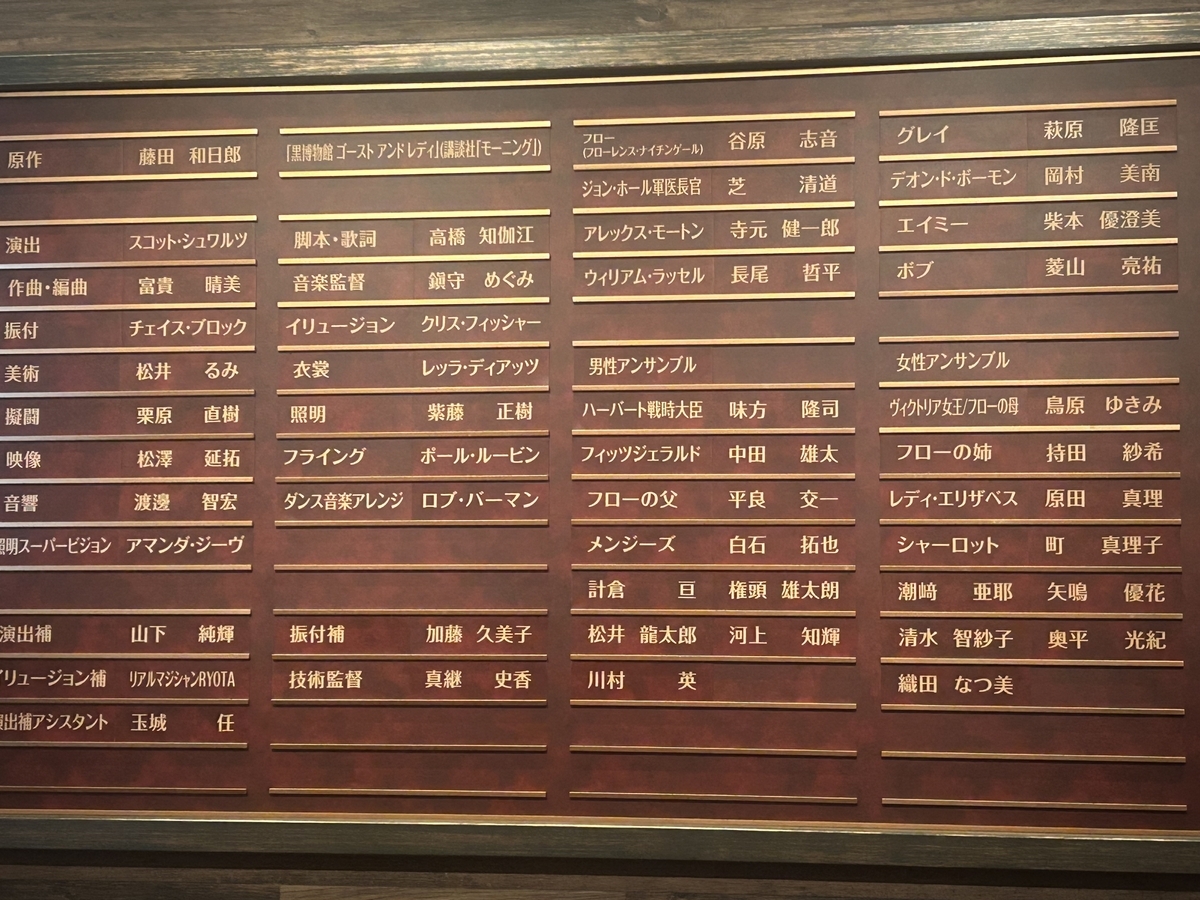 原作 藤田 和日郎
演出 スコット・シュワルツ
作曲・編曲 富貴 晴美
振付 チェイス・ブロック
美術 松井 るみ
擬闘 栗原 直樹
映像 松澤 延拓
音響 渡邊 智宏
照明スーパービジョン アマンダ・ジーヴ
演出補 山下 純輝
イリュージョン補 リアルマジシャンRYOTA
演出補アシスタント 玉城 任
「黒博物館 ゴースト アンド レディ」(講談社「モーニング」)
脚本・歌詞 高橋 知伽江
音楽監督 鎭守 めぐみ
イリュージョン クリス・フィッシャー
衣裳 レッラ・ディアッツ
照明 紫藤 正樹
フライング ポール・ルービン
ダンス音楽アレンジ ロブ・バーマン
振付補 加藤 久美子
技術監督 真継 史香
フロー
(フローレンス・ナイチンゲール) 谷原 志音
ジョン・ホール軍医長官 芝 清道
アレックス・モートン 寺元 健一郎
ウィリアム・ラッセル 長尾 哲平
男性アンサンブル
ハーバート戦時大臣 味方 隆司
フィッツジェラルド 中田 雄太
フローの父 平良 交一
メンジーズ 白石 拓也
計倉 亘 権頭 雄太朗
松井 龍太郎 河上 知輝
川村 英
グレイ 萩原 隆匡
デオン・ド・ボーモン 岡村 美南
エイミー 柴本 優澄美
ボブ 菱山 亮祐
女性アンサンブル
ヴィクトリア女王/フローの母 鳥原 ゆきみ
フローの姉 持田 紗希
レディ・エリザベス 原田 真理
シャーロット 町 真理子
潮﨑 亜耶 矢鳴 優花
清水 智紗子 奥平 光紀
織田 なつ美